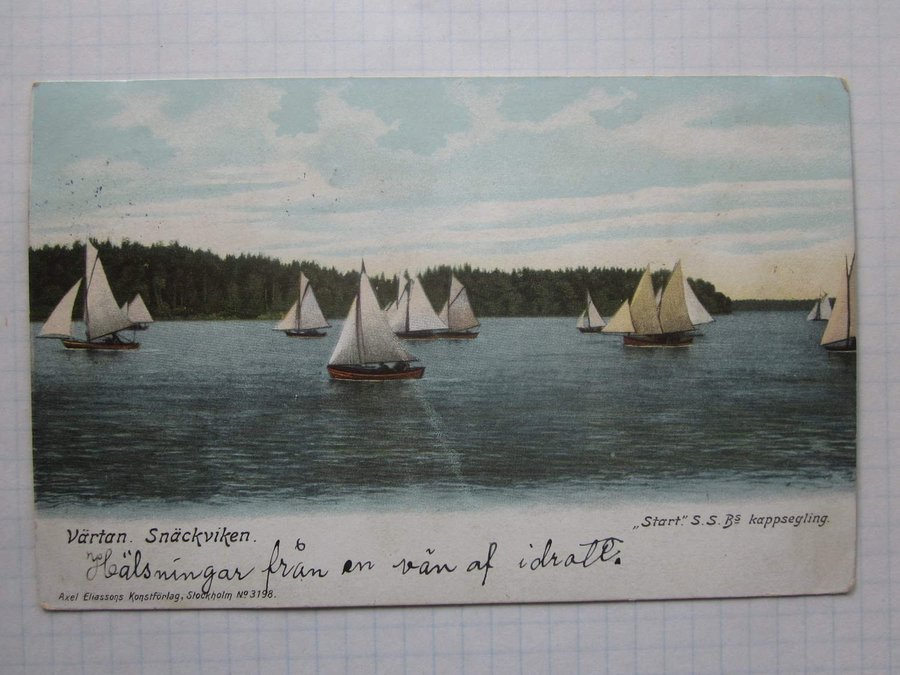 Värtan. Snäckviken.
„Start." S.S.Bs kappsegling.
Hälsningar från en vän af idrott.
Axel Eliassons Konstförlag, Stockholm No 3198.